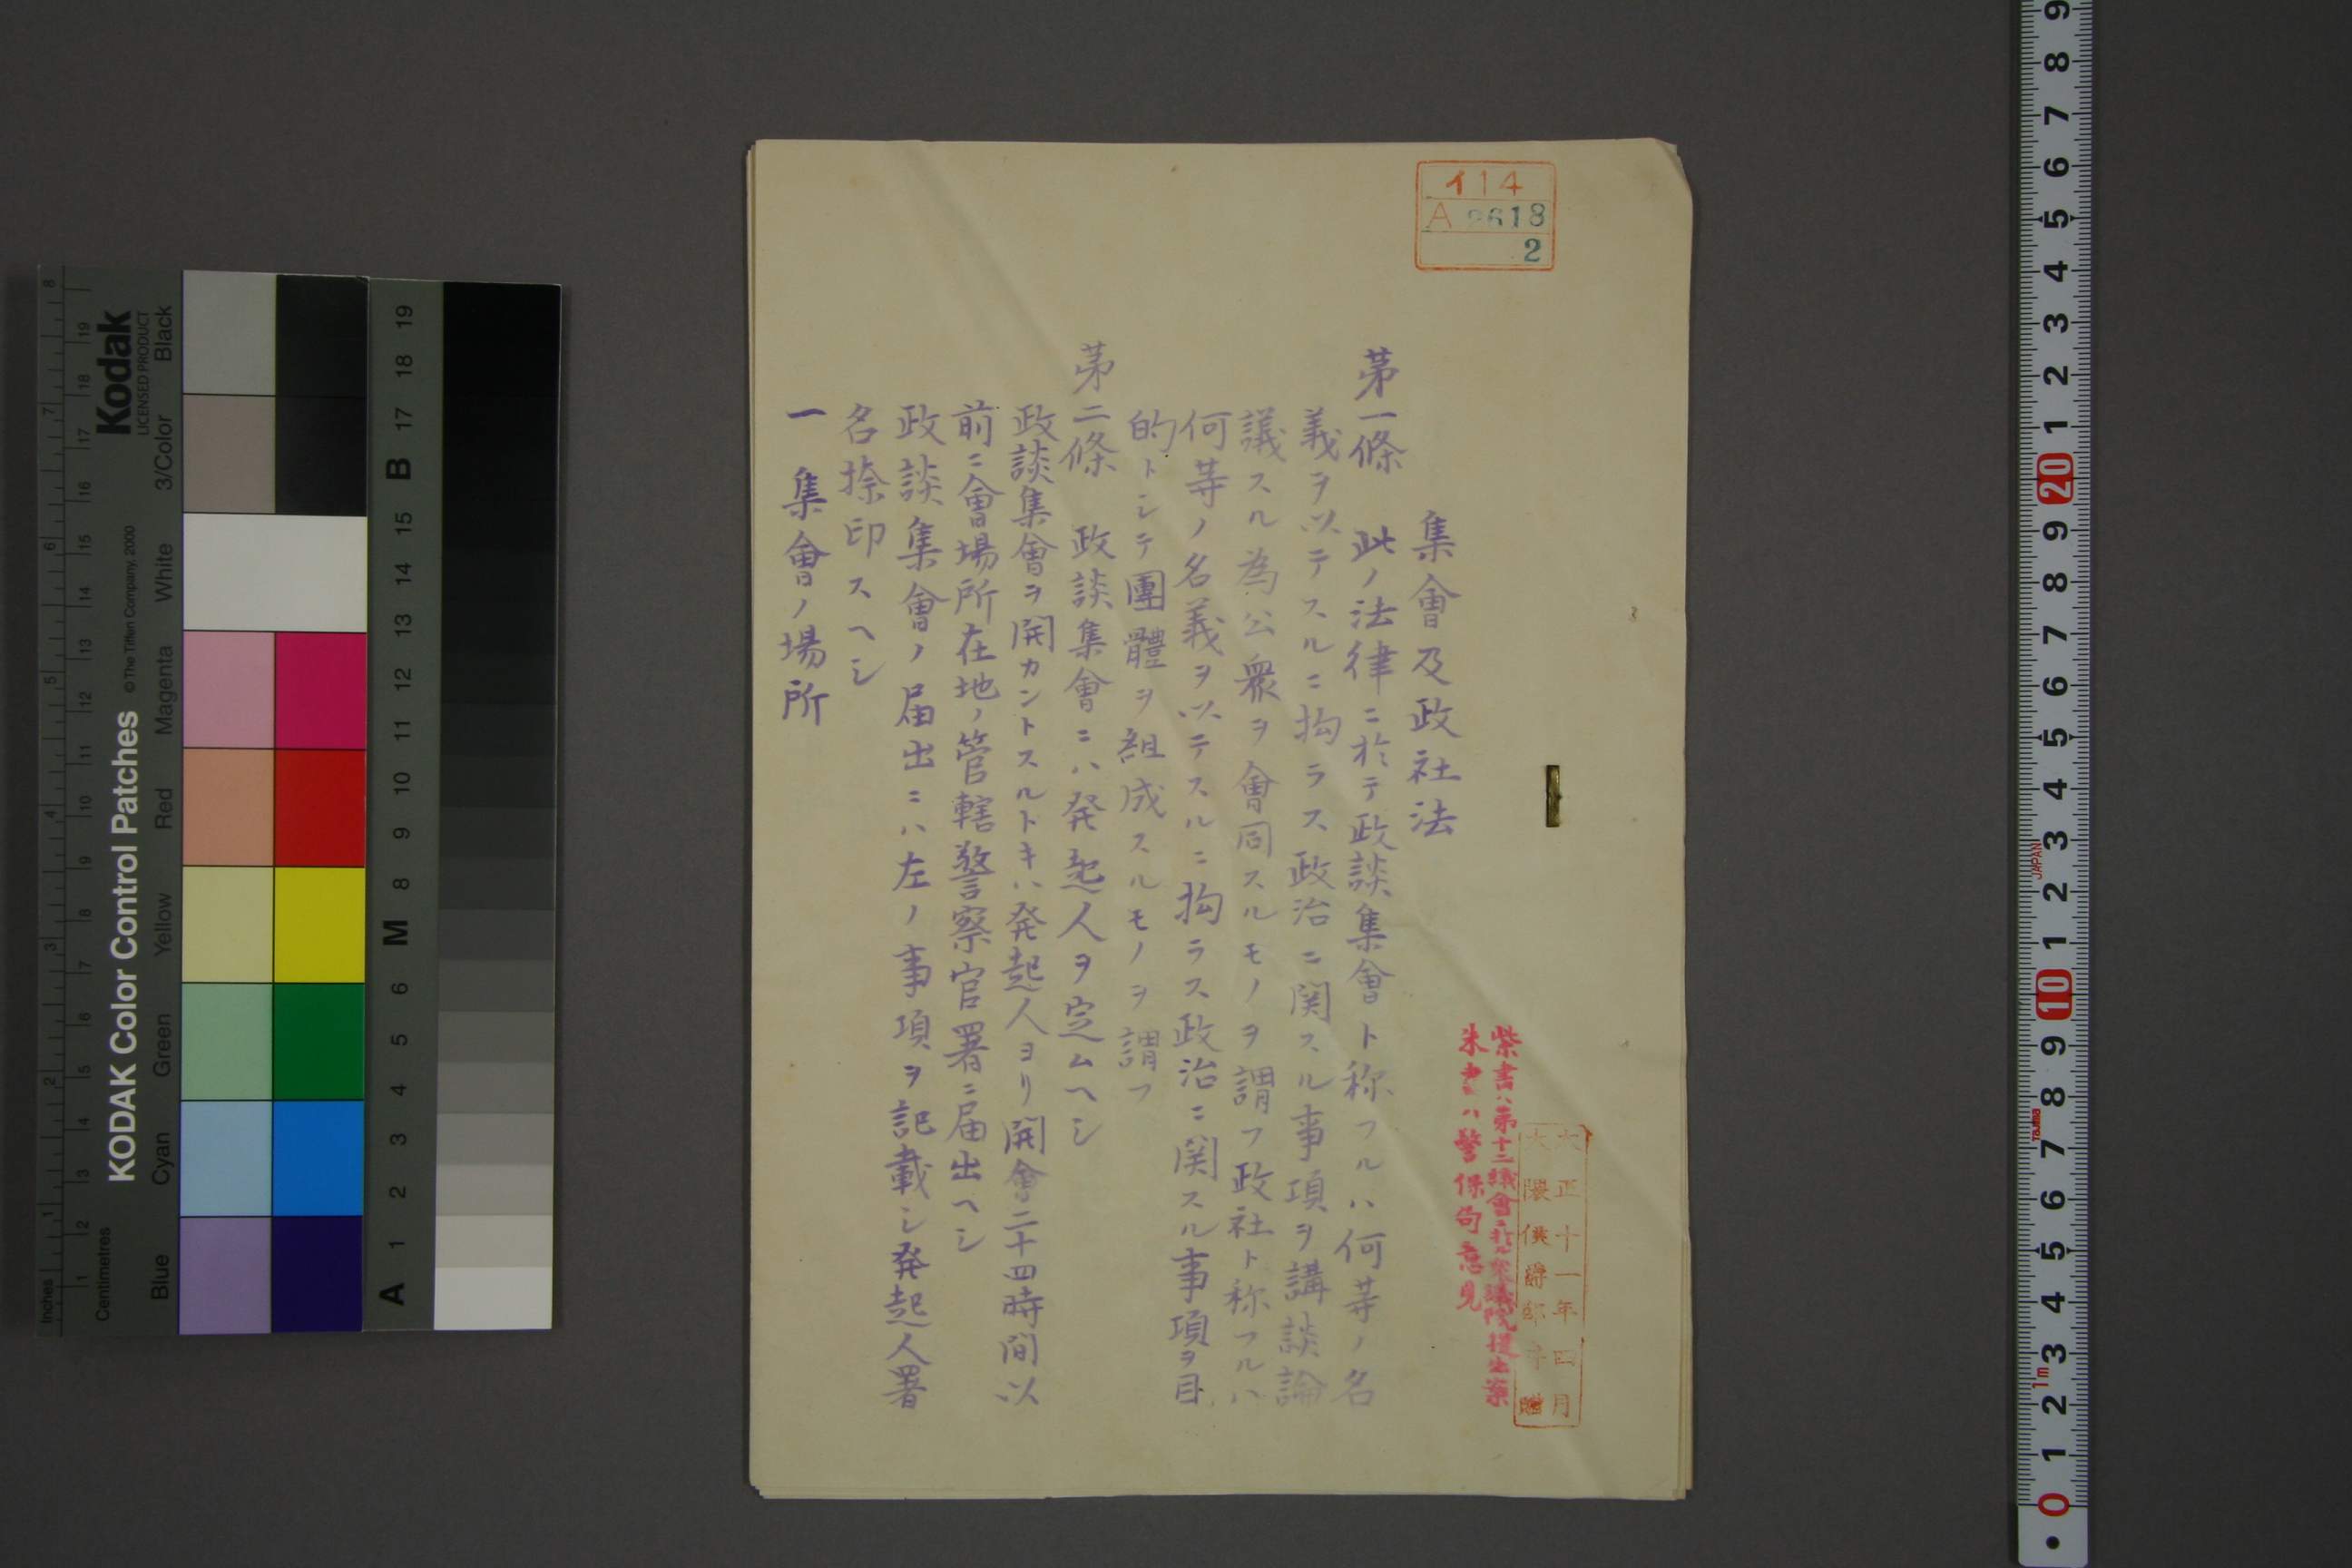 イ14
A 2618
2
大正十一年四月
大隈侯爵邸寄贈
紫書ハ第十二議會ニ於ル衆議院提出案
朱書ハ警保局意見
集會及政社法
第一條 此ノ法律ニ於テ政談集會ト称フルハ何等ノ名
義ヲ以テスルニ拘ラス政治ニ関スル事項ヲ講談論
議スル為公衆ヲ會同スルモノヲ謂フ政社ト称フルハ
何等ノ名義ヲ以テスルニ拘ラス政治ニ関スル事項ヲ目
的トシテ團體ヲ組成スルモノヲ謂フ
第二條 政談集會ニハ発起人ヲ定ムヘシ
政談集會ヲ開カントスルトキハ発起人ヨリ開會二十四時間以
前ニ會場所在地ノ管轄警察官署ニ届出ヘシ
政談集會ノ届出ニハ左ノ事項ヲ記載シ発起人署
名捺印スヘシ
一 集會ノ場所
Kodak
LICENSED PRODUCT
KODAK Color Control Patches
© The Tiffen Company, 2000
Inches
Centimetres
Blue
Cyan
Green
Yellow
Red
Magenta
White
3/Color
Black
A 1 2 3 4 5 6 M 8 9 10 11 12 13 14 15 B 17 18 19
JAPAN
Tajima
1m